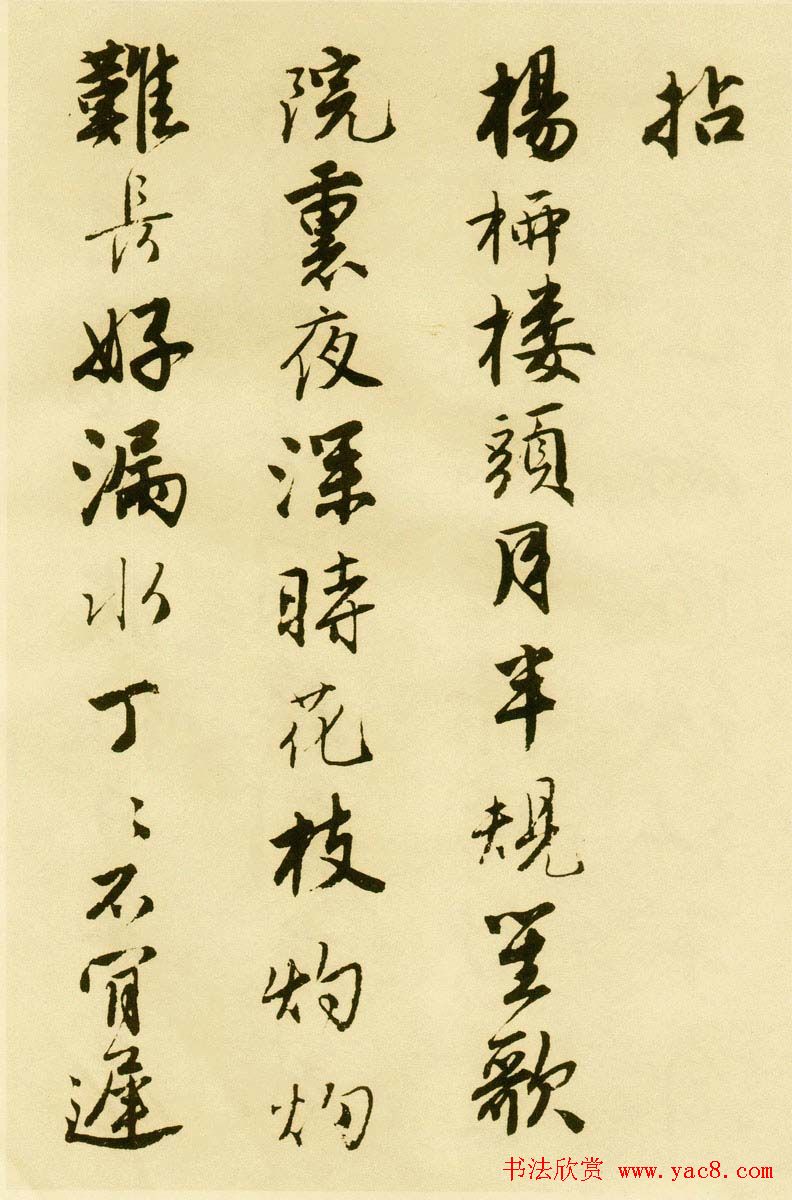 拈
楊柳楼頭月半規笙歌
院裏夜深時花枝灼灼
難長好漏水丁〻不肯遲
书法欣赏 www.yac8.com